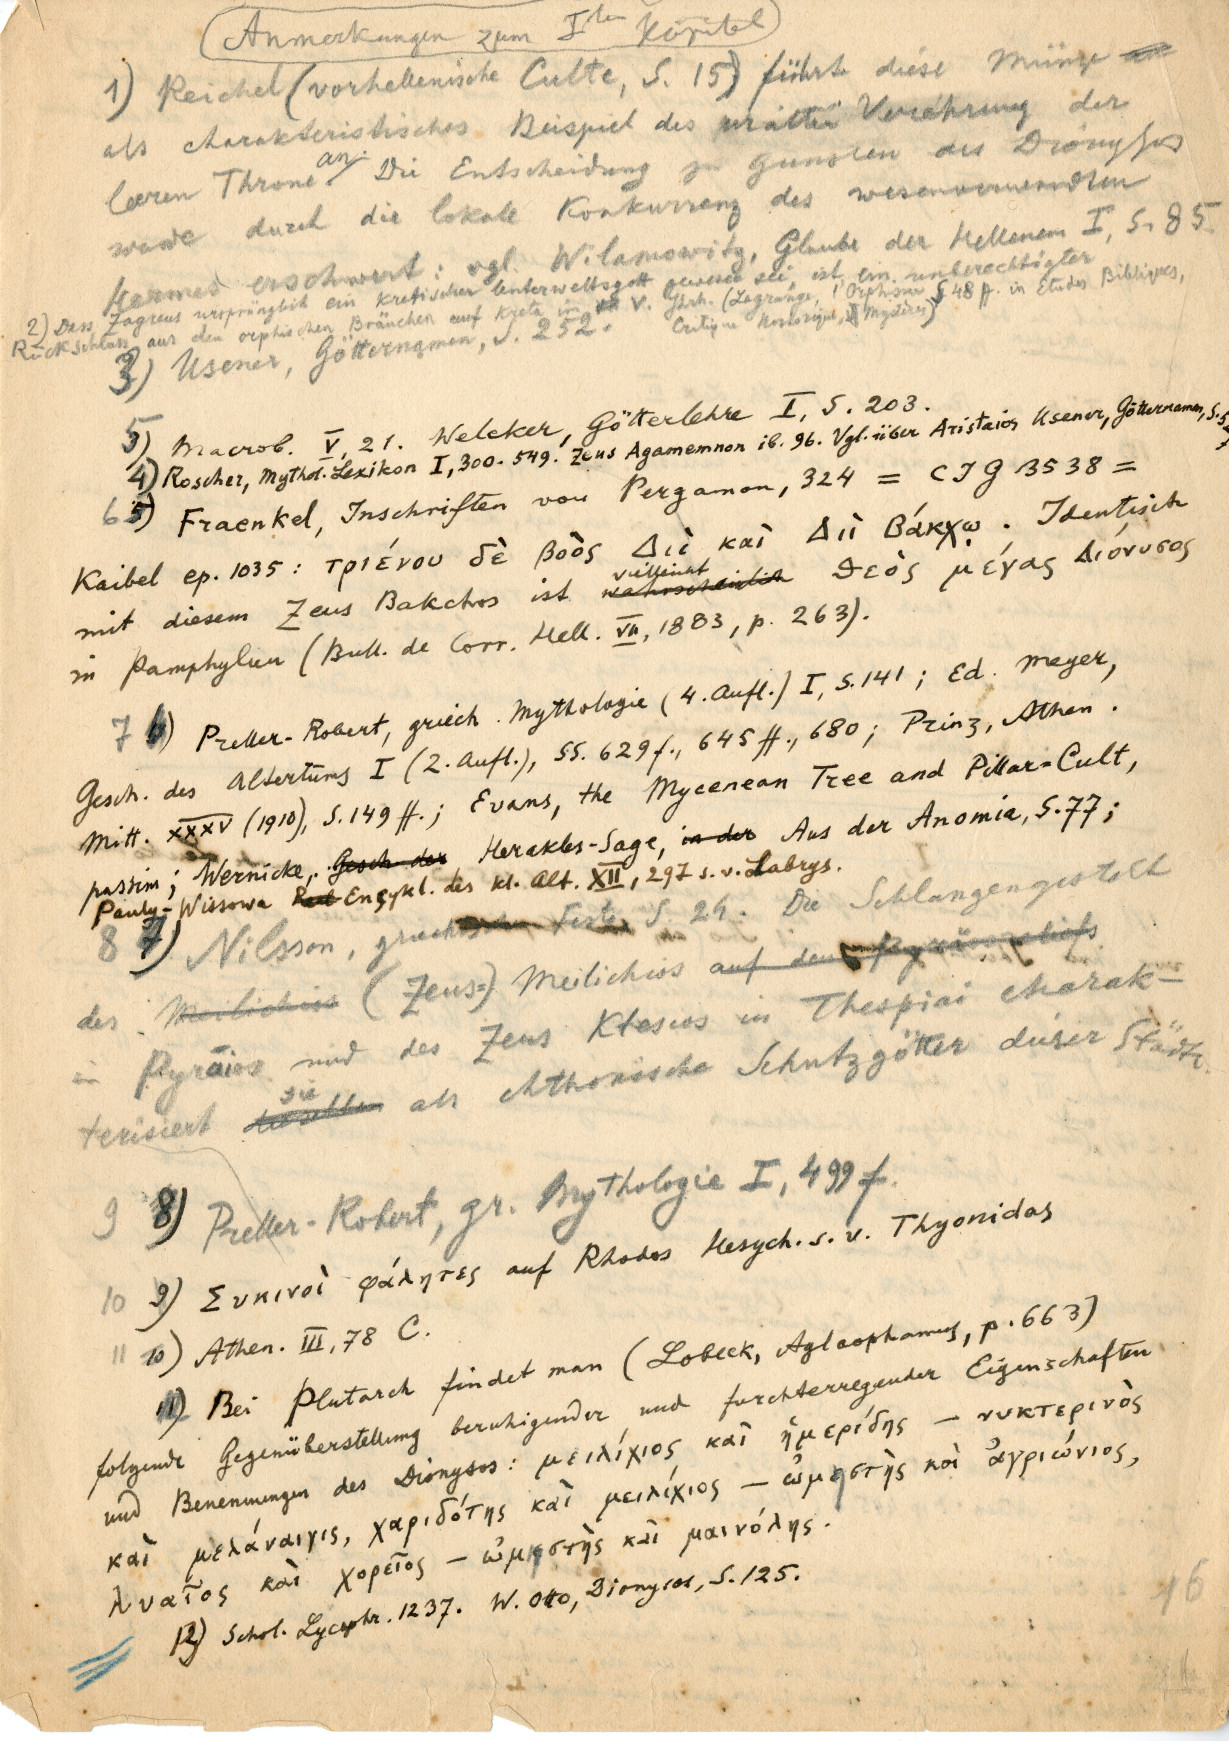 Anmerkungen zum Iten Kapitel
1) Reichel (vorhellenische Culte, S. 15) führt diese Münze
als charakteristisches Beispiel des uralten Verehrung der
leeren Throne an. Die Entscheidung zu gunsten des Dionysos
wurde durch die lokale Konkurrenz des wesensverwandten
Hermes erschwert: vgl. Wilamowitz, Glaube der Hellenen I, S. 85.
2) Dass Zagreus ursprünglich ein kretischer Unterweltsgott gewesen sei, ist ein unberechtigter
Rückschluss aus den orphischen Bräuchen auf Kreta im V. Jhrh. (Lagrange, l'Orphisme S 48 ff. in Etudes Bibliques,
Critique historique, Mystères)
3) Usener, Götternamen, S. 252.
5) Macrob. V, 21. Welcker, Götterlehre I, S. 203.
4) Roscher, Mythol. Lexikon I, 300. 549. Zeus Agamemnon ib. 96. Vgl. über Aristaios Usener, Götternamen, S.
6 5) Fraenkel, Inschriften von Pergamon, 324 = CIG 3538 =
Kaibel ep. 1035: τριένου δὲ βοὸς Διὶ καὶ Διὶ Βάκχῳ. Identisch
mit diesem Zeus Bakchos ist wahrscheinlich vielleicht θεὸς μέγας Διόνυσος
in Pamphylien (Bull. de Corr. Hell. VII, 1883, p. 263).
7 6) Preller-Robert, griech. Mythologie (4. Aufl.) I, S. 141; Ed. Meyer,
Gesch. des Altertums I (2. Aufl.), SS. 629 f., 645 ff., 680; Prinz, Athen.
Mitt. XXXV (1910), S. 149 ff.; Evans, the Mycenean Tree and Pillar-Cult,
passim; Wernicke, Gesch der Herakles-Sage, in der Aus der Anomia, S. 77;
Pauly-Wissowa Real Enzykl. des kl. Alt. XII, 297 s. v. Labrys.
8 7) Nilsson, griechische Feste, S. 24. Die Schlangengestalt
des Meilichios (Zeus=) Meilichios auf dem
in Pyräios und des Zeus Ktesios in Thespiai charak-
terisiert dieselben sie als chthonische Schutzgötter dieser Städte.
9 8) Preller-Robert, gr. Mythologie I, 499 f.
10 9) Συκινοὶ φάλητες auf Rhodos Hesych. s. v. Thyonidas
11 10) Athen. III, 78 C.
11) Bei Plutarch findet man (Lobeck, Aglaophamus, p. 663)
folgende Gegenüberstellung beruhigender und furchterregender Eigenschaften
und Benennungen des Dionysos: μειλίχιος καὶ ἡμερίδης – νυκτερινὸς
καὶ μελάναιγις, χαριδότης καὶ μειλίχιος – ὠμηστὴς καὶ ἀγριώνιος,
λυαῖος καὶ χορεῖος – ὠμηστὴς καὶ μαινόλης.
12) Schol. Lycophr. 1237. W. Otto, Dionysos, S. 125.
16